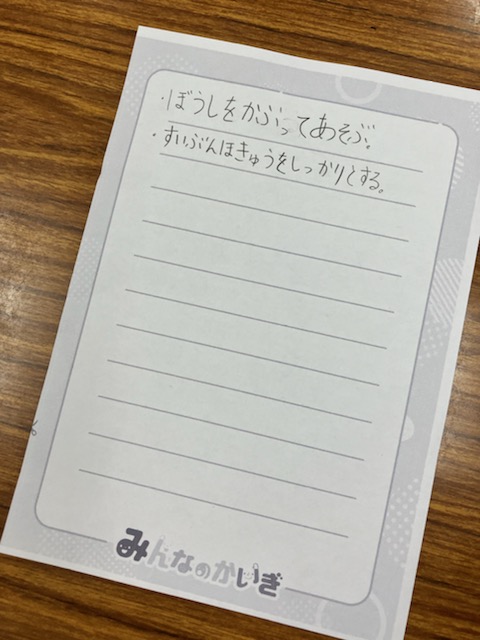 ・ぼうしをかぶってあそぶ。
・すいぶんほきゅうをしっかりとする。
みんなのかいぎ